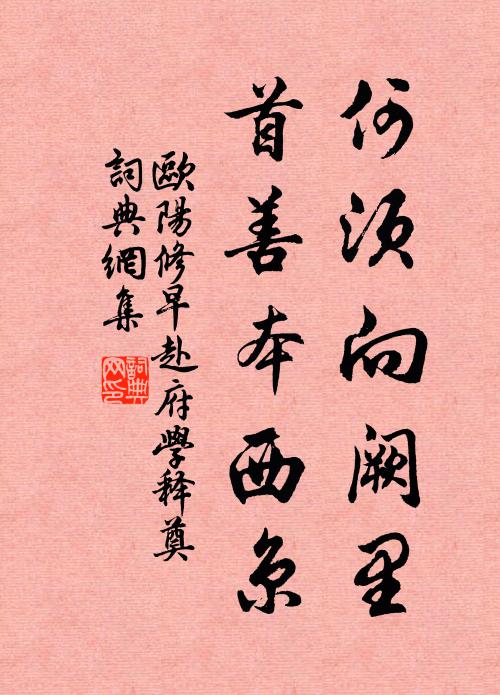 何須向闕里
首善本西京
歐陽修早赴府學释奠
詞典網集
詞典
网印